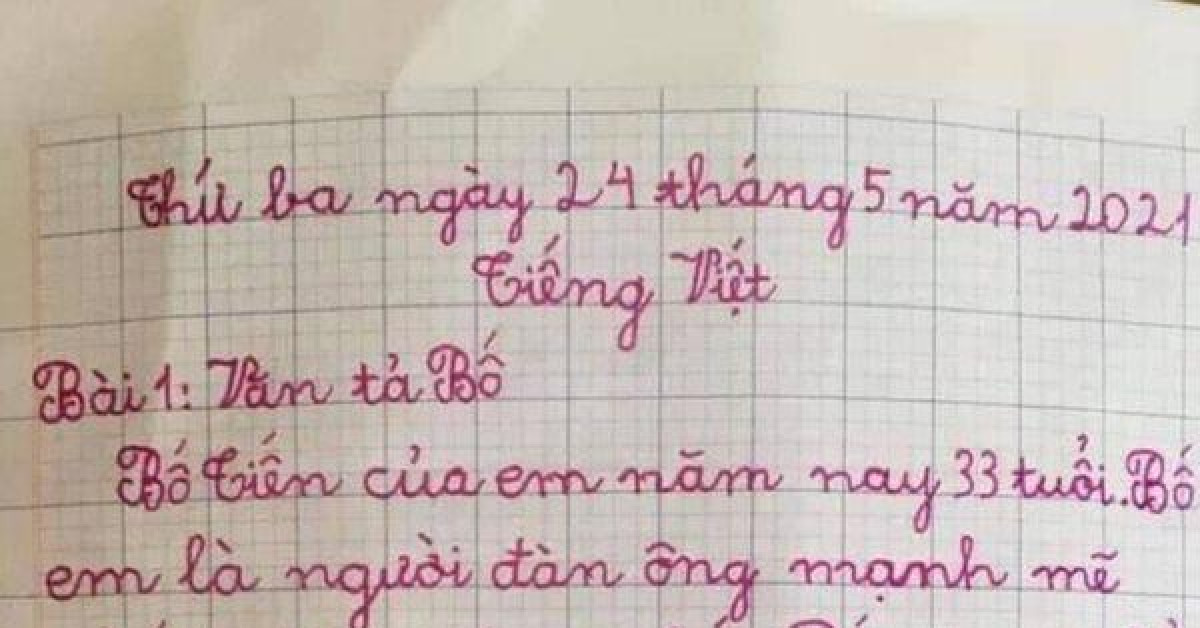 Thứ ba ngày 24 tháng 5 năm 2021
Tiếng Việt
Bài 1: Văn tả Bố
Bố Tiến của em năm nay 33 tuổi. Bố
em là người đàn ông mạnh mẽ